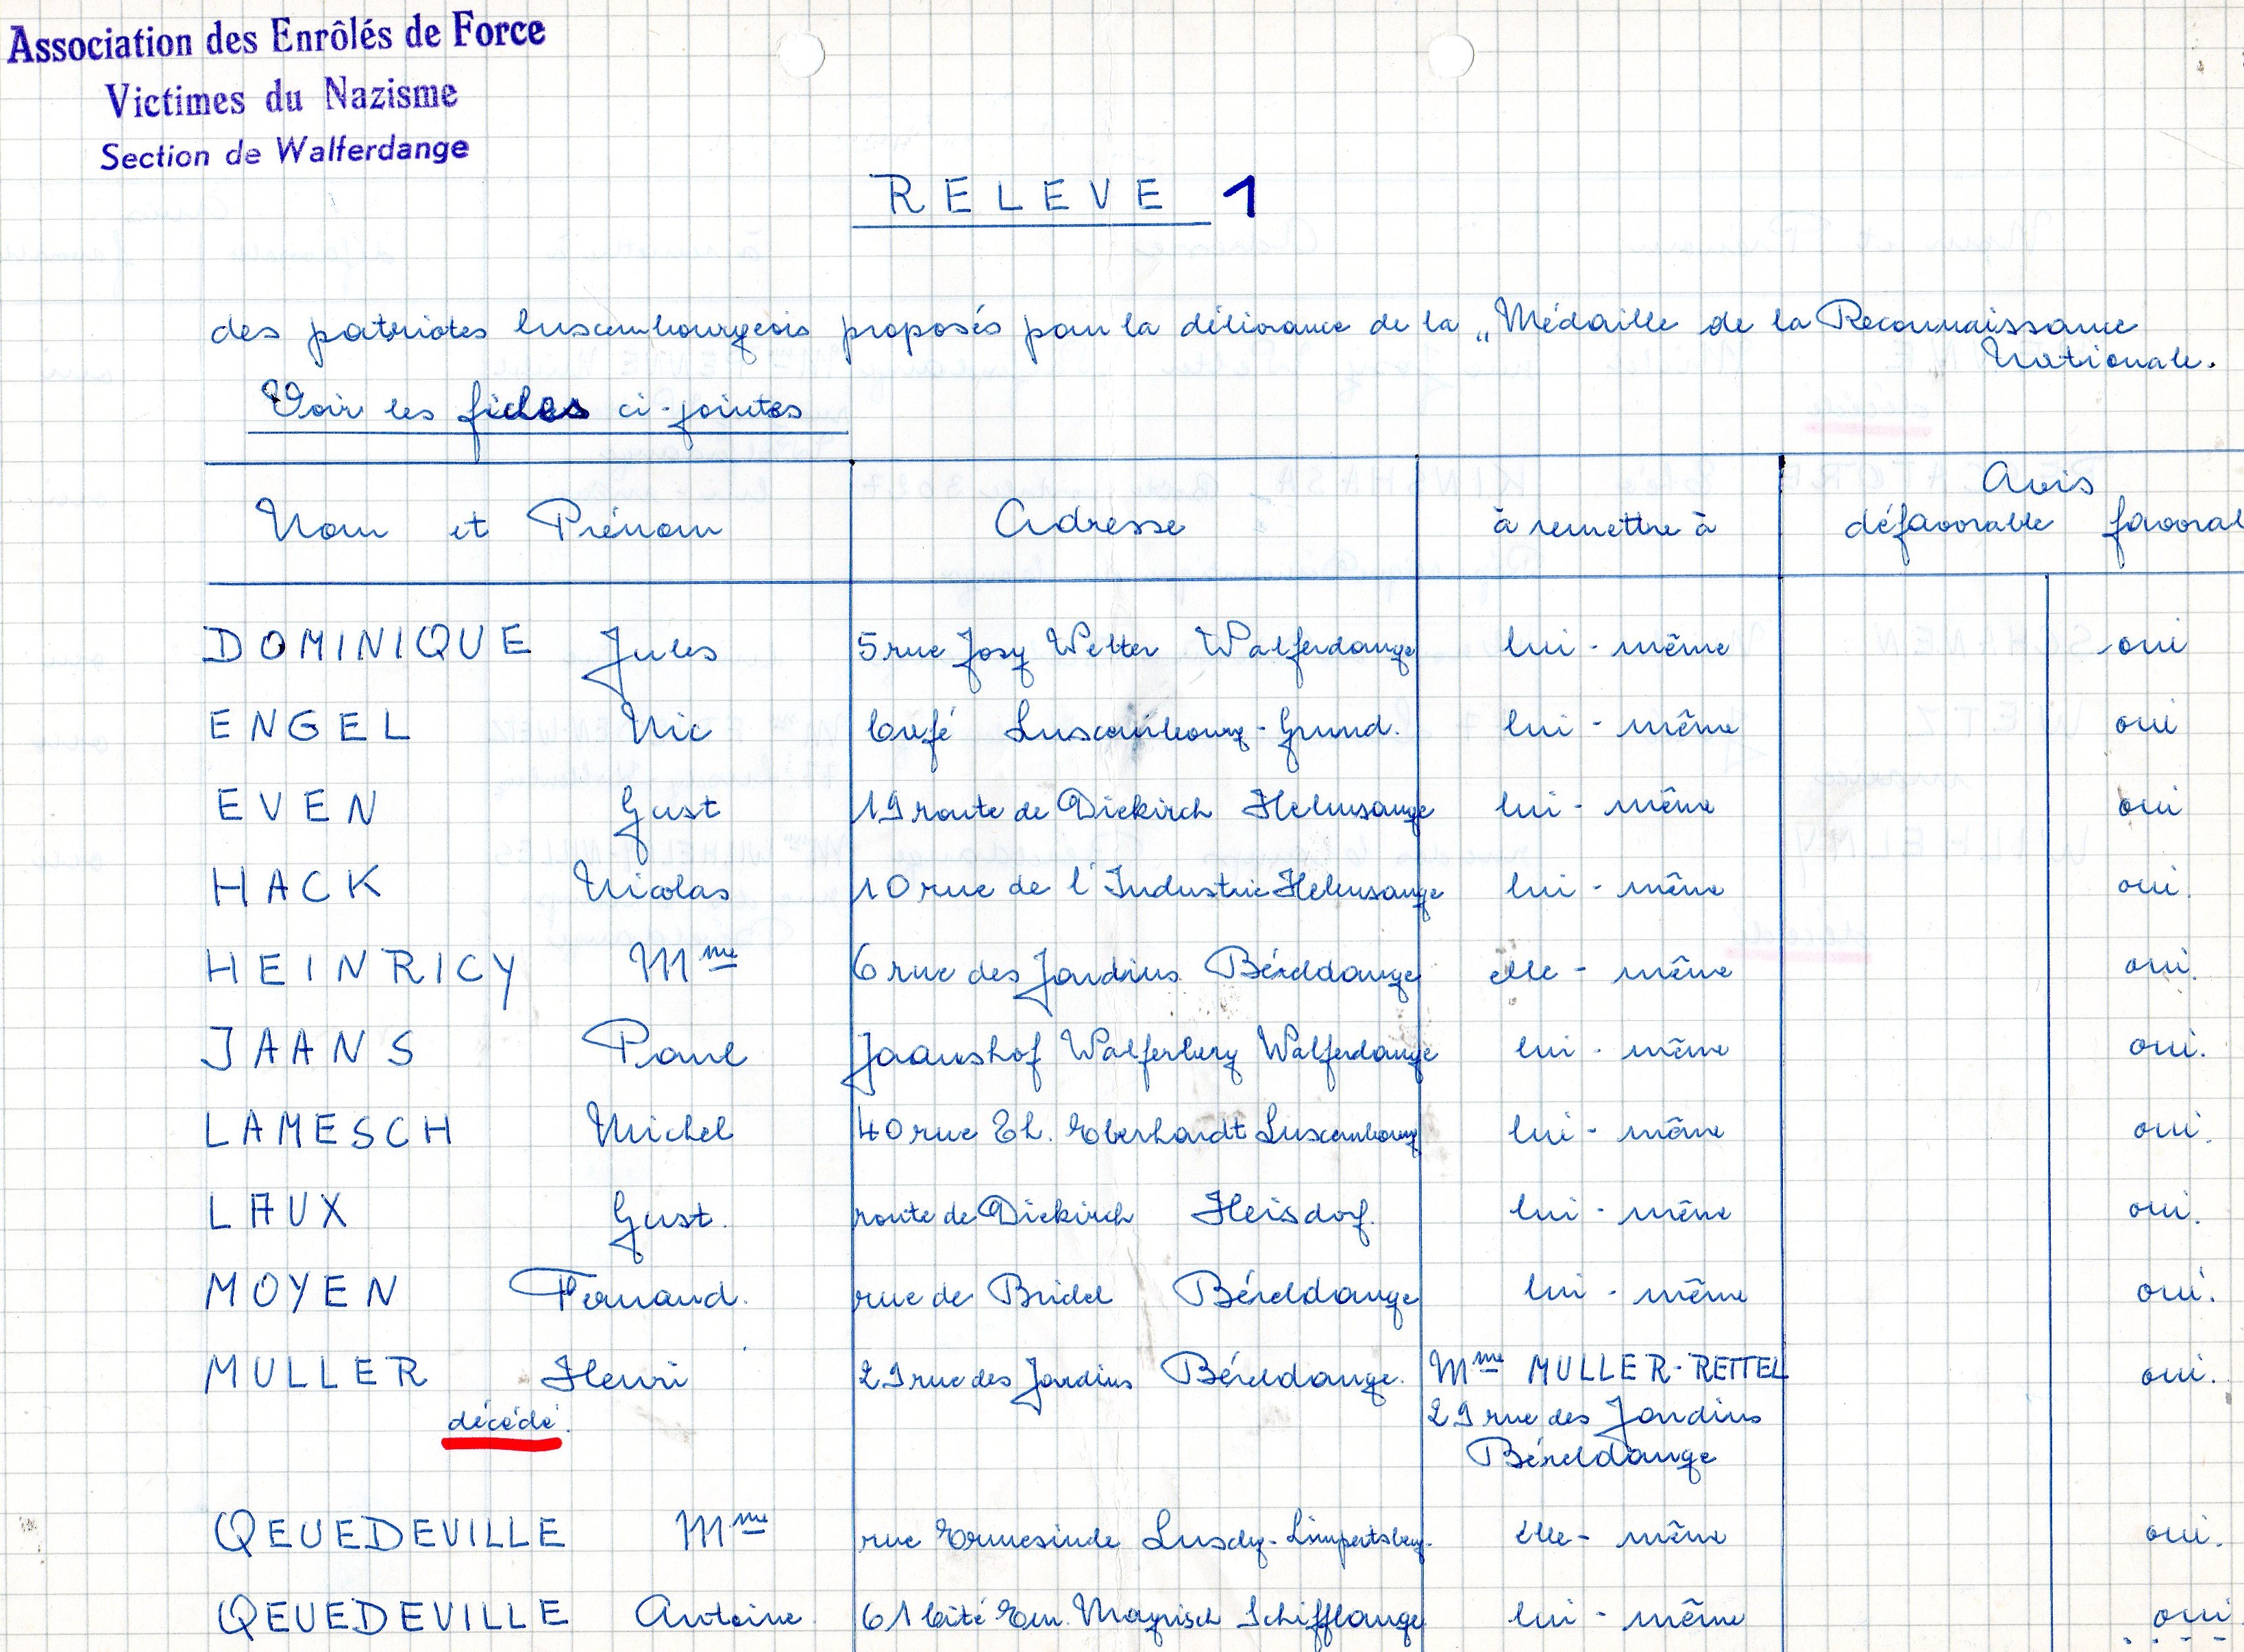 Association des Enrôlés de Force
Victimes du Nazisme
Section de Walferdange
RELEVE 1
des patriotes luxembourgeois proposés pour la délivrance de la „Médaille de la Reconnaissance
Nationale.
Voir les fiches ci-jointes
Nom et Prénom Adresse à remettre à Avis
défavorable favorab
DOMINIQUE Jules 5 rue Josy Welter Walferdange lui-même oui
ENGEL Nic Café Luxembourg-Grund. lui-même oui
EVEN Gust 19 route de Diekirch Helmsange lui-même oui
HACK Nicolas 10 rue de l'Industrie Helmsange lui-même oui.
HEINRICY Mme 6 rue des Jardins Béreldange elle-même oui.
JAANS Paul Jaanshof Walferberg Walferdange lui-même oui.
LAMESCH Michel 40 rue Th. Eberhardt Luxembourg lui-même oui.
LAUX Gust. route de Diekirch Heisdorf. lui-même oui.
MOYEN Fernand. rue de Bridel Béreldange lui-même oui.
MULLER Henri 29 rue des Jardins Béreldange. Mme MULLER-RETTEL oui.
décédé. 29 rue des Jardins
Béreldange
QEUEDEVILLE Mme rue Ermesinde Luxbg-Limpertsberg. elle-même oui.
QEUEDEVILLE Antoine. 61 Cité Em. Mayrisch Schifflange lui-même oui